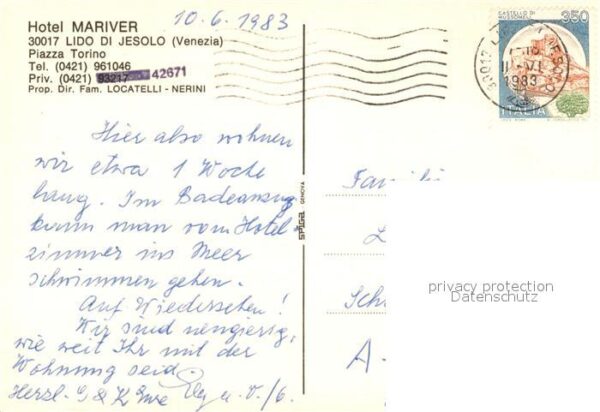 Hotel MARIVER
30017 LIDO DI JESOLO (Venezia)
Piazza Torino
Tel. (0421) 961046
Priv. (0421) 93217 42671
Prop. Dir. Fam. LOCATELLI - NERINI
10.6.1983
CASTELLO DI
MUSSOMELI
350
1983
ITALIA
Hier also wohnen
wir etwa 1 Woche
lang. Im Badeanzug
kann man vom Hotel-
zimmer ins Meer
schwimmen gehen.
Auf Wiedersehen!
Wir sind neugierig,
wie weit Ihr mit der
Wohnung seid.
Herzl. G
spiga GENOVA
Famili
L
Sch
A-
privacy protection
Datenschutz